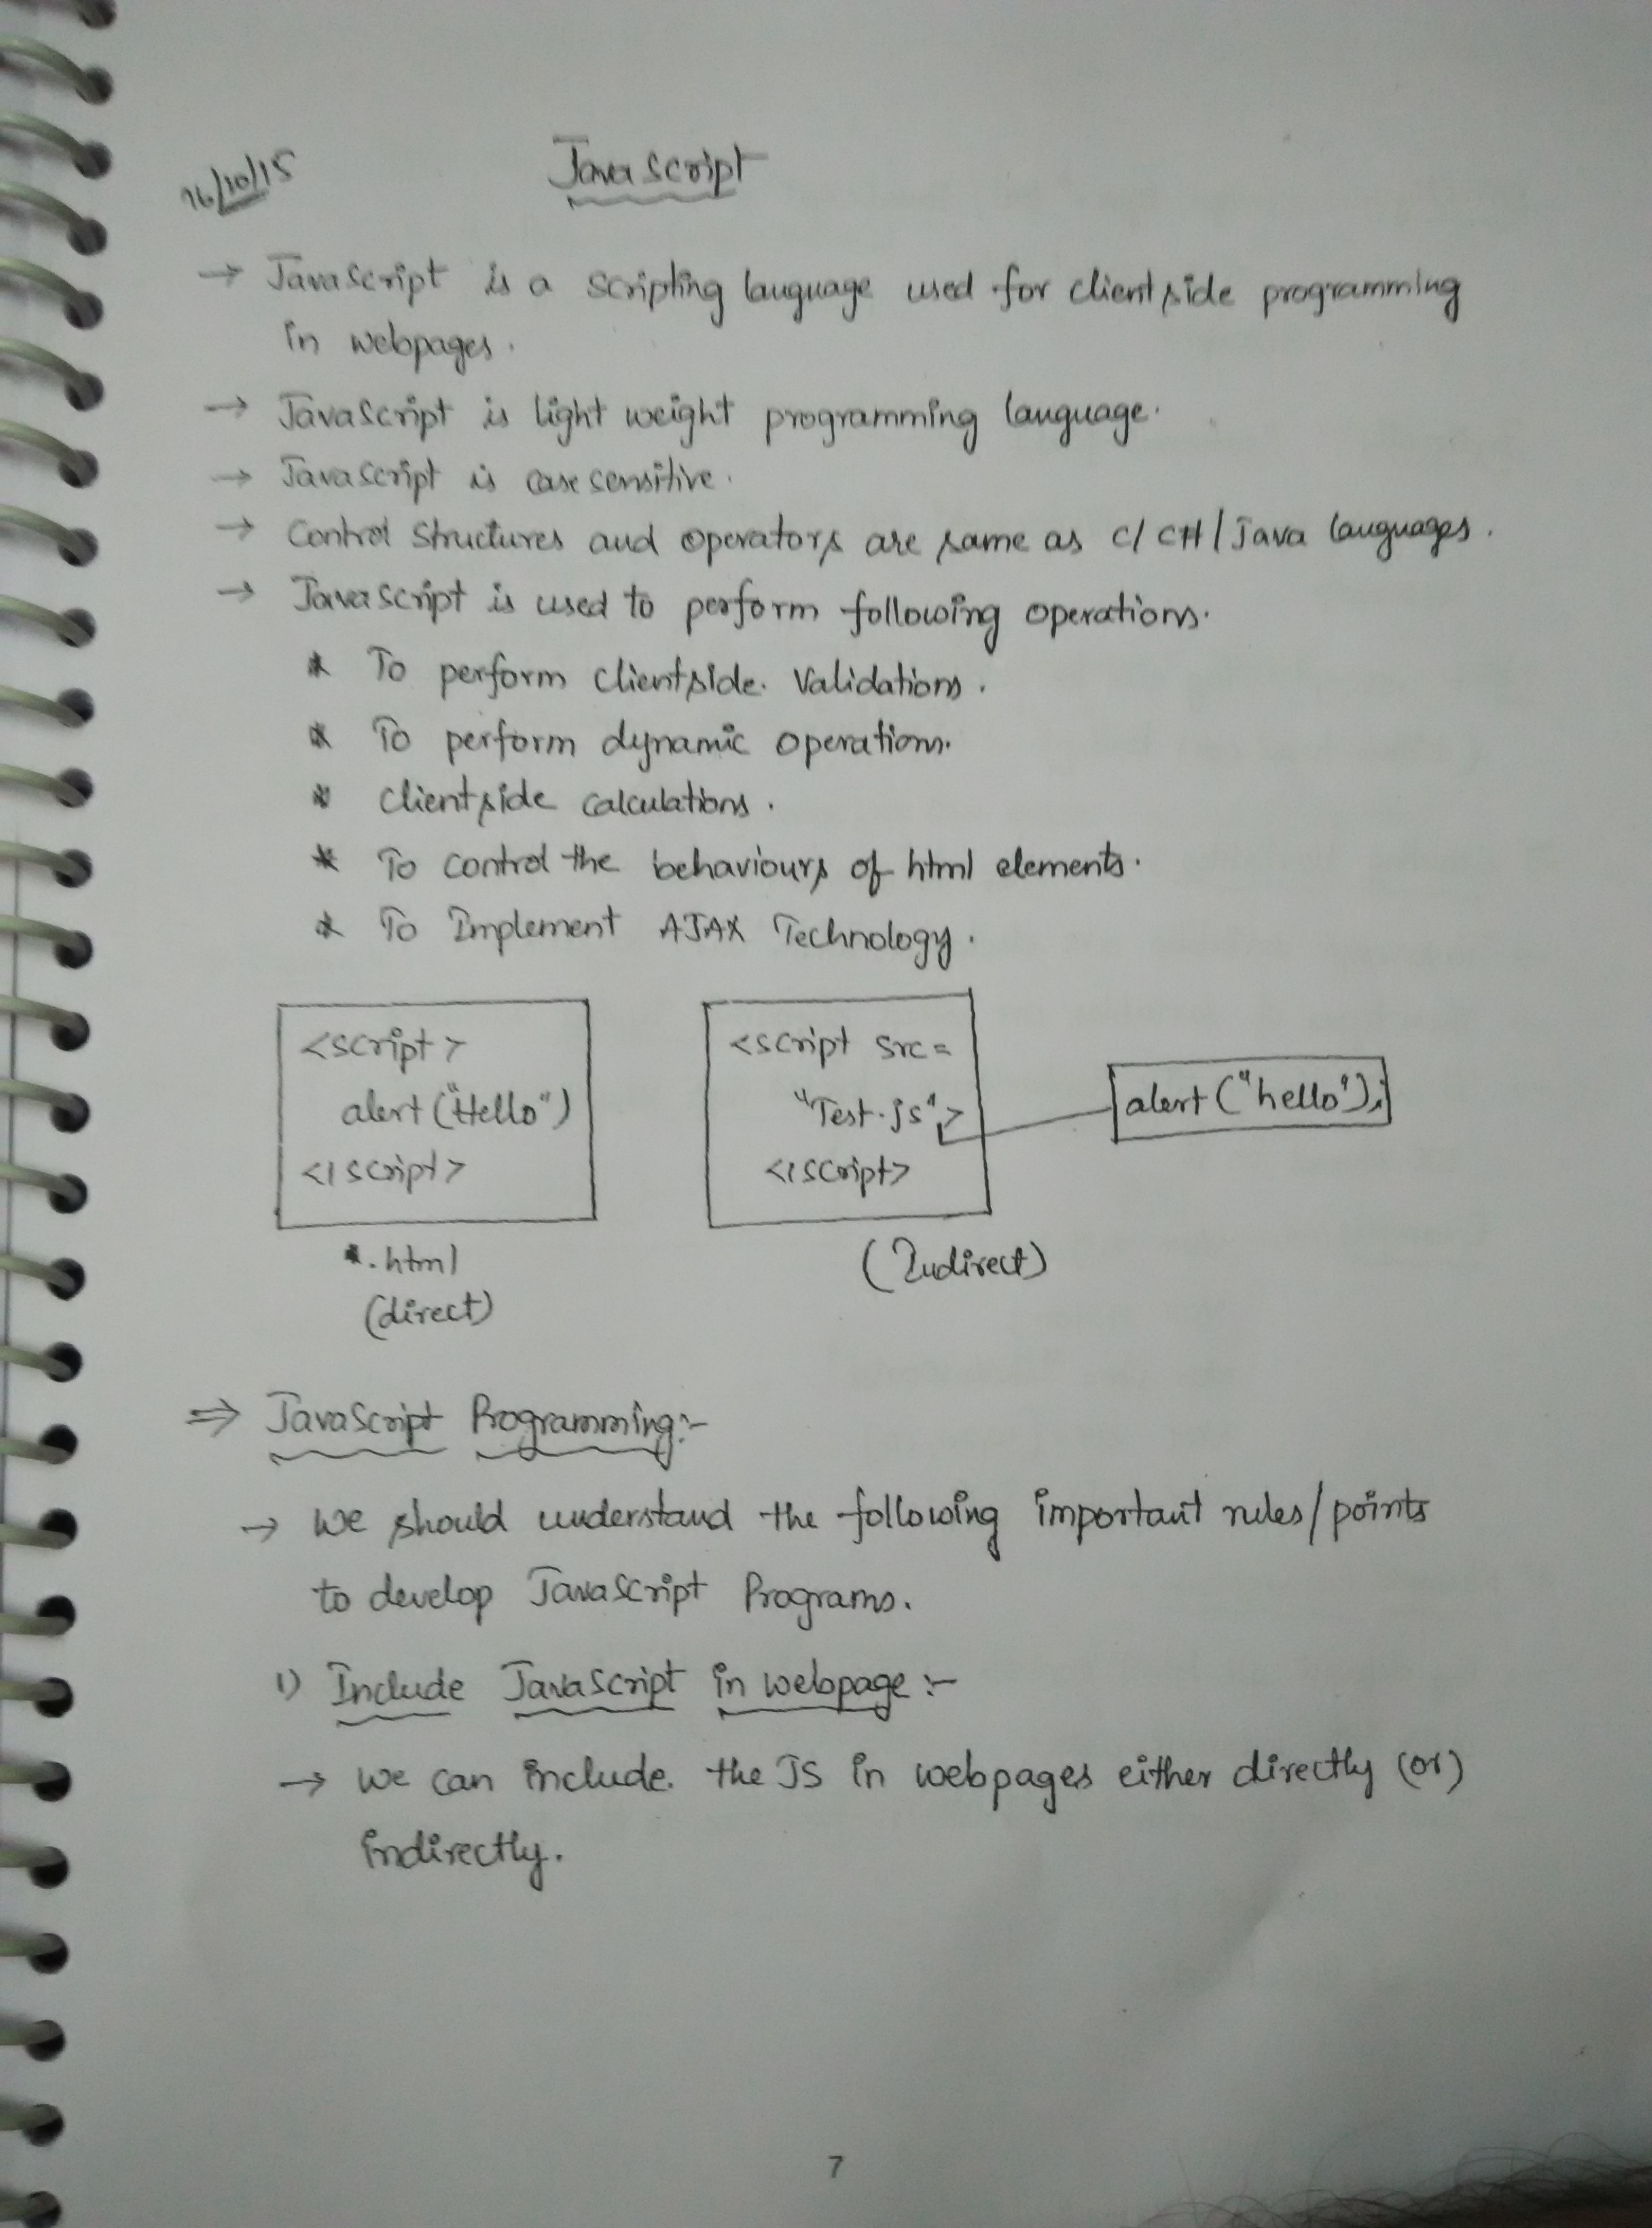 16/10/15
JavaScript
→ JavaScript is a scripting language used for clientside programming
in webpages.
→ JavaScript is light weight programming language.
→ JavaScript is case sensitive.
→ Control Structures and operators are same as C/C++/Java languages.
→ JavaScript is used to perform following operations.
* To perform clientside validations.
* To perform dynamic operations.
* Clientside calculations.
* To control the behaviours of html elements.
* To Implement AJAX Technology.
<script>
alert("Hello")
</script>
*.html
(direct)
<script src=
"Test.js">
</script>
(Indirect)
alert("hello");
⇒ JavaScript Programming:-
→ We should understand the following important rules/points
to develop JavaScript Programs.
1) Include JavaScript in webpage:-
→ We can include the JS in webpages either directly (or)
indirectly.
7